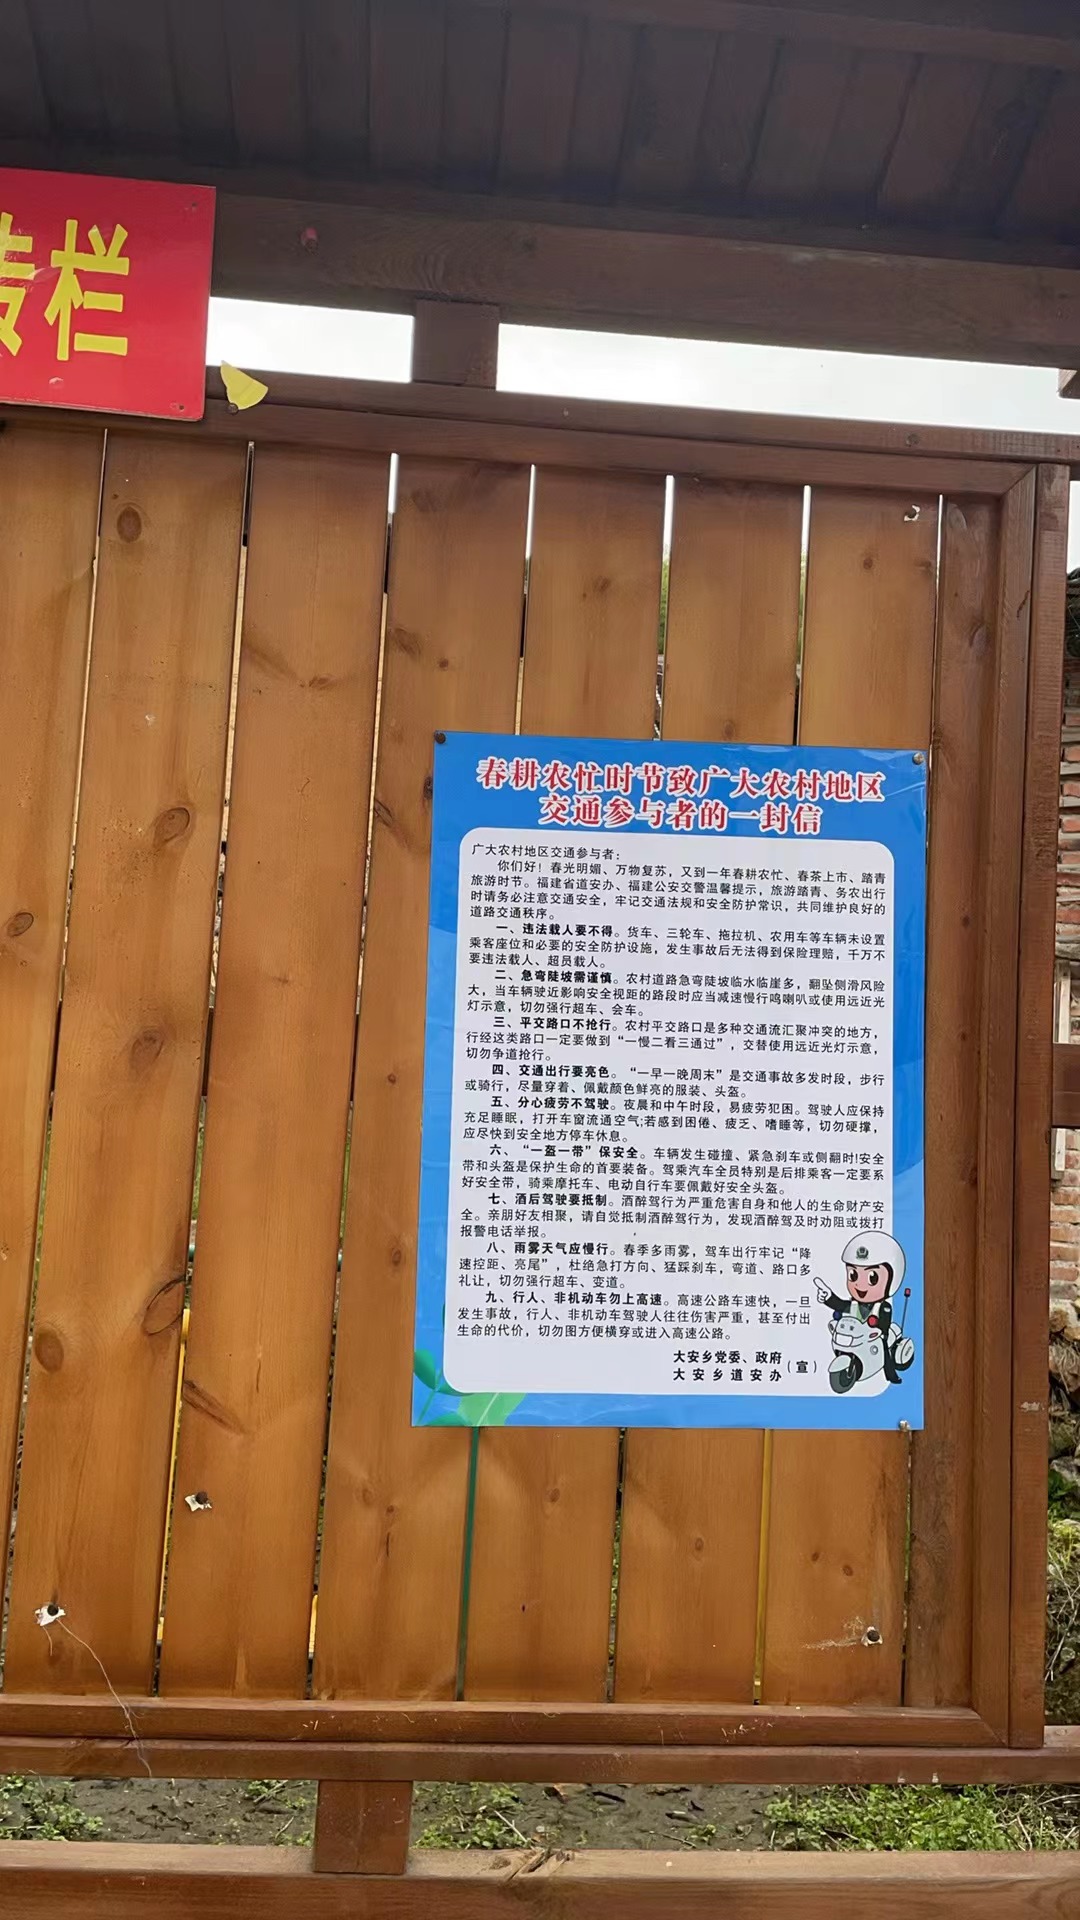 栏
春耕农忙时节致广大农村地区
交通参与者的一封信
广大农村地区交通参与者：
你们好！春光明媚、万物复苏，又到一年春耕农忙、春茶上市、踏青
旅游时节。福建省道安办、福建公安交警温馨提示，旅游踏青、务农出行
时请务必注意交通安全，牢记交通法规和安全防护常识，共同维护良好的
道路交通秩序。
一、违法载人要不得。货车、三轮车、拖拉机、农用车等车辆未设置
乘客座位和必要的安全防护设施，发生事故后无法得到保险理赔，千万不
要违法载人、超员载人。
二、急弯陡坡需谨慎。农村道路急弯陡坡临水临崖多，翻坠侧滑风险
大，当车辆驶近影响安全视距的路段时应当减速慢行鸣喇叭或使用远近光
灯示意，切勿强行超车、会车。
三、平交路口不抢行。农村平交路口是多种交通流汇聚冲突的地方，
行经这类路口一定要做到“一慢二看三通过”，交替使用远近光灯示意，
切勿争道抢行。
四、交通出行要亮色。“一早一晚周末”是交通事故多发时段，步行
或骑行，尽量穿着、佩戴颜色鲜亮的服装、头盔。
五、分心疲劳不驾驶。夜晨和中午时段，易疲劳犯困。驾驶人应保持
充足睡眠，打开车窗流通空气;若感到困倦、疲乏、嗜睡等，切勿硬撑，
应尽快到安全地方停车休息。
六、“一盔一带”保安全。车辆发生碰撞、紧急刹车或侧翻时!安全
带和头盔是保护生命的首要装备。驾乘汽车全员特别是后排乘客一定要系
好安全带，骑乘摩托车、电动自行车要佩戴好安全头盔。
七、酒后驾驶要抵制。酒醉驾行为严重危害自身和他人的生命财产安
全。亲朋好友相聚，请自觉抵制酒醉驾行为，发现酒醉驾及时劝阻或拨打
报警电话举报。
八、雨雾天气应慢行。春季多雨雾，驾车出行牢记“降
速控距、亮尾”，杜绝急打方向、猛踩刹车，弯道、路口多
礼让，切勿强行超车、变道。
九、行人、非机动车勿上高速。高速公路车速快，一旦
发生事故，行人、非机动车驾驶人往往伤害严重，甚至付出
生命的代价，切勿图方便横穿或进入高速公路。
大安乡党委、政府
大安乡道安办（宣）